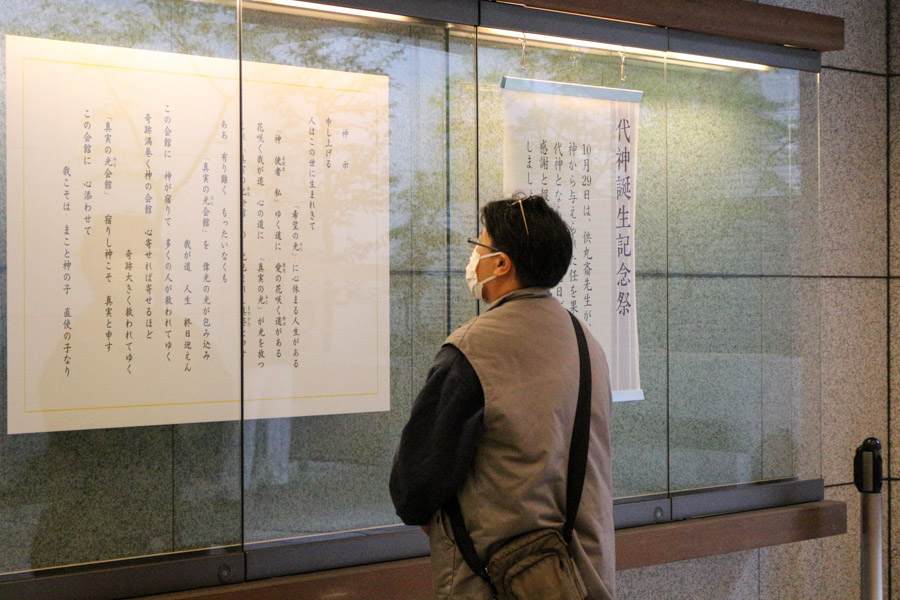 代神誕生記念祭
10月29日は、供丸斎先生が、
神から与え
代神とな
感謝と
しまし
神示
申し上げる
人はこの世に生まれきて
「希望の光」に心休まる人生がある
「神 使者 私」ゆく道に 愛の花咲く道がある
花咲く我が道 心の道に 「真実の光」が光を放つ
ああ 有り難く もったいなくも
「真実の光会館」を 偉光の光が包み込み
我が道 人生 終日迎えん
この会館に 神が宿りて 多くの人が救われてゆく
奇跡渦巻く神の会館 心寄せれば寄せるほど
奇跡大きく救われてゆく
「真実の光会館」 宿りし神こそ 真実と申す
この会館に 心添わせて
我こそは まこと神の子 直使の子なり